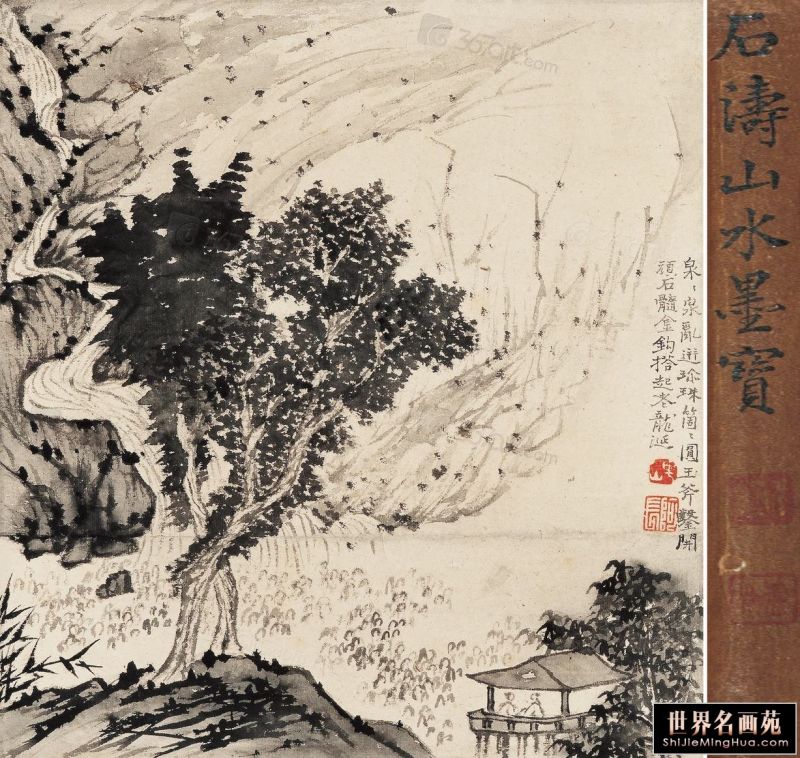 石濤山水墨寶
泉〻泉亂迸珎珠箇〻圓玉斧鑿開
頑石髓金鈎搭起老龍涎
阿長
世界名画苑
ShiJieMingHua.com